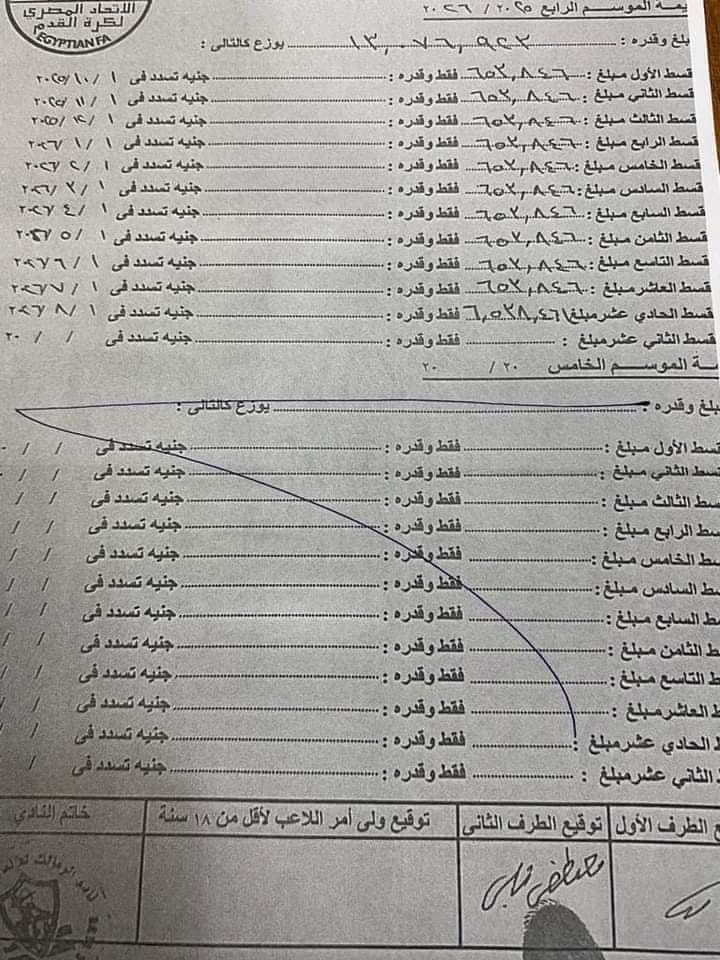 الاتحاد المصري
لكرة القدم
EGYPTIAN FA
يمة الموسم الرابع ٢٠٢٥ / ٢٠٢٦
بلغ وقدره : ١٣,٠٧٦,٩٢٣ يوزع كالتالى :
قسط الأول مبلغ : ٦٥٣,٨٤٦ فقط وقدره : جنيه تسدد فى ١ / ١٠ / ٢٠٢٥
قسط الثاني مبلغ : ٦٥٣,٨٤٦ فقط وقدره : جنيه تسدد فى ١ / ١١ / ٢٠٢٥
قسط الثالث مبلغ : ٦٥٣,٨٤٦ فقط وقدره : جنيه تسدد فى ١ / ١٢ / ٢٠٢٥
قسط الرابع مبلغ : ٦٥٣,٨٤٦ فقط وقدره : جنيه تسدد فى ١ / ١ / ٢٠٢٦
قسط الخامس مبلغ : ٦٥٣,٨٤٦ فقط وقدره : جنيه تسدد فى ١ / ٢ / ٢٠٢٦
قسط السادس مبلغ : ٦٥٣,٨٤٦ فقط وقدره : جنيه تسدد فى ١ / ٣ / ٢٠٢٦
قسط السابع مبلغ : ٦٥٣,٨٤٦ فقط وقدره : جنيه تسدد فى ١ / ٤ / ٢٠٢٦
قسط الثامن مبلغ : ٦٥٣,٨٤٦ فقط وقدره : جنيه تسدد فى ١ / ٥ / ٢٠٢٦
قسط التاسع مبلغ : ٦٥٣,٨٤٦ فقط وقدره : جنيه تسدد فى ١ / ٦ / ٢٠٢٦
قسط العاشر مبلغ : ٦٥٣,٨٤٦ فقط وقدره : جنيه تسدد فى ١ / ٧ / ٢٠٢٦
قسط الحادي عشر مبلغ ٦,٥٣٨,٤٦١ فقط وقدره : جنيه تسدد فى ١ / ٨ / ٢٠٢٦
قسط الثاني عشر مبلغ : فقط وقدره : جنيه تسدد فى / / ٢٠
مة الموسم الخامس ٢٠ / ٢٠
بلغ وقدره : يوزع كالتالى :
قسط الأول مبلغ : فقط وقدره : جنيه تسدد فى / /
قسط الثاني مبلغ : فقط وقدره : جنيه تسدد فى / /
سط الثالث مبلغ : فقط وقدره : جنيه تسدد فى / /
سط الرابع مبلغ : فقط وقدره : جنيه تسدد فى / /
سط الخامس مبلغ : فقط وقدره : جنيه تسدد فى / /
سط السادس مبلغ : فقط وقدره : جنيه تسدد فى / /
سط السابع مبلغ : فقط وقدره : جنيه تسدد فى / /
ط الثامن مبلغ : فقط وقدره : جنيه تسدد فى / /
ط التاسع مبلغ : فقط وقدره : جنيه تسدد فى / /
ط العاشر مبلغ : فقط وقدره : جنيه تسدد فى / /
ط الحادي عشر مبلغ : فقط وقدره : جنيه تسدد فى / /
ط الثاني عشر مبلغ : فقط وقدره : جنيه تسدد فى /
ع الطرف الأول توقيع الطرف الثانى توقيع ولى أمر اللاعب لأقل من ١٨ سنة خاتم النادي
مصطفى شلبي